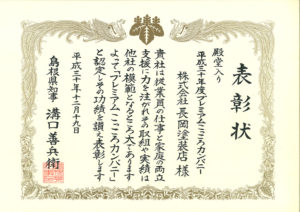 表彰状
殿堂入り
平成三十年度プレミアムこころカンパニー
株式会社長岡塗装店 様
貴社は従業員の仕事と家庭の両立
支援に力を注がれその取組や実績は
他社の模範となるところ大であります
よって「プレミアムこころカンパニー」
と認定しその功績を讃え表彰します
平成三十年十二月十九日
島根県知事 溝口善兵衛